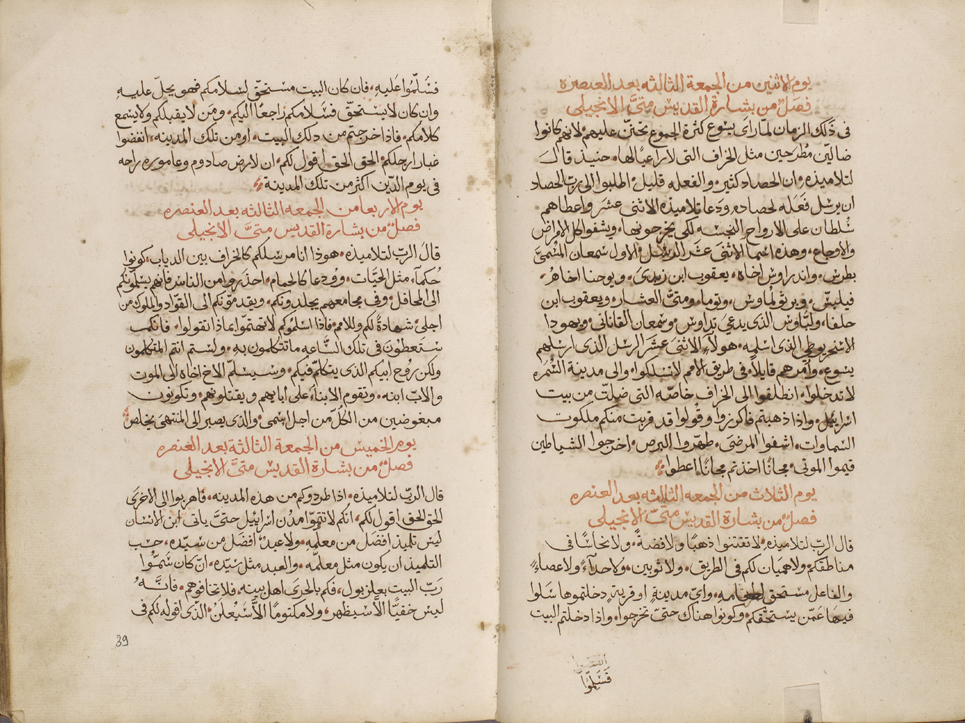 يوم الاثنين من الجمعة الثالثه بعد العنصره
فصل من بشارة القديس متى الانجيلي
فى ذلك الزمان لما راى يسوع كثرة الجموع تحنن عليهم لانهم كانوا
ضالين مطرحين مثل الخراف التى لا راعى لها حينيذ قال
لتلاميذه ان الحصاد كثير والفعله قليل اطلبوا الى رب الحصاد
ان يرسل فعله لحصاده ودعا تلاميذه الاثنى عشر واعطاهم
سلطان على الارواح النجسه لكى يخرجونها ويشفوا كل الامراض
والاوجاع وهذه اسما الاثنى عشر الرسل الاول سمعان المسمى
بطرس واندراوس اخاه يعقوب ابن زبدى ويوحنا اخاهُ
فيلبس وبرثولماوس وتوما ومتى العشار ويعقوب ابن
حلفا ولبّاوس الذى يدعى تداوس وسمعان القانانى ويهودا
الاسخريوطى الذى اسلمه هولاء الاثنى عشر الرسل الذى ارسلهم
يسوع وامرهم قايلاً فى طريق الامم لا تسلكوا والى مدينة السمره
لا تدخلوا انطلقوا الى الخراف خاصّه التى ضلت من بيت
اسرايل واذا ذهبتم فاكرزوا وقولوا قد قربت منكم ملكوت
السماوات اشفوا المرضى طهروا البرص اخرجوا الشياطين
قيموا الموتى مجانًا اخذتم مجانًا اعطوا
يوم الثلاث من الجمعة الثالثه بعد العنصره
فصل من بشارة القديس متى الانجيلي
قال الرب لتلاميذه لا تقتنوا ذهبًا ولا فضةً ولا نحاسًا فى
مناطقكم ولا هميان لكم فى الطريق ولا ثوبين ولا حذآء ولا عصاءً
والفاعل مستحق طعامه واى مدينة او قرية دخلتموها سَلوا
فيها عمّن يستحقكم وكونوا هناك حتى تخرجوا واذا دخلتم البيت
فسَلموا
فسَلّمُوا عليه فان كان البيت مستحق لسلامكم فهو يحل عليه
وان كان لا يستحق فسلامكم راجعًا اليكم ومن لا يقبلكم ولا يسمع
كلامكم فاذا خرجتم من ذلك البيت او من تلك المدينه انفضوا
غبار ارجلكم الحق الحق اقول لكم ان لارض صادوم وعاموره راحه
فى يوم الدين اكثر من تلك المدينة
يوم الاربعا من الجمعه الثالثه بعد العنصره
فصل من بشارة القديس متى الانجيلي
قال الرب لتلاميذه هوذا انا مرسلكم كالخراف بين الدياب كونوا
حُكمآء مثل الحيّات وودعا كالحمام احذروا من الناس فانهم يسلمونكم
الى المحافل وفى مجامعهم يجلدونكم ويقدمونكم الى القواد والملوك من
اجلى شهادةً لكم وللامم فاذا اسلموكم لا تهتموا بماذا تقولوا فانكم
ستعطون فى تلك السّاعه ما تتكلمون به ولستم انتم المتكلمون
ولكن روح ابيكم الذى يتكلم فيكم وسيسلم الاخ اخاه الى الموت
والاب ابنه وتقوم الابناء على أبايهم ويقتلونهم وتكونون
مبغوضين من الكل من اجل اسمى والذى يصبر الى المنتهى يخلص
يوم الخميس من الجمعة الثالثة بعد العنصره
فصل من بشارة القديس متى الانجيلي
قال الرب لتلاميذه اذا طردوكم من هذه المدينه فاهربوا الى الاخرى
الحق الحق اقول لكم انكم لا تتموا مدن اسرايل حتى ياتى ابن الانسان
ليس تلميذ افضل من معلمه ولا عبدٌ افضل من سيده حسب
التلميذ ان يكون مثل معلمه والعبد مثل سيّده ان كان سَمُّوا
ربّ البيت بعلزبول فكم بالحرى اهل بيته فلا تخافوهم فانّهُ
ليس خفيًّا الا سيظهر ولا مكتومًا الّا سَيُعلن الذى اقوله لكم فى
39